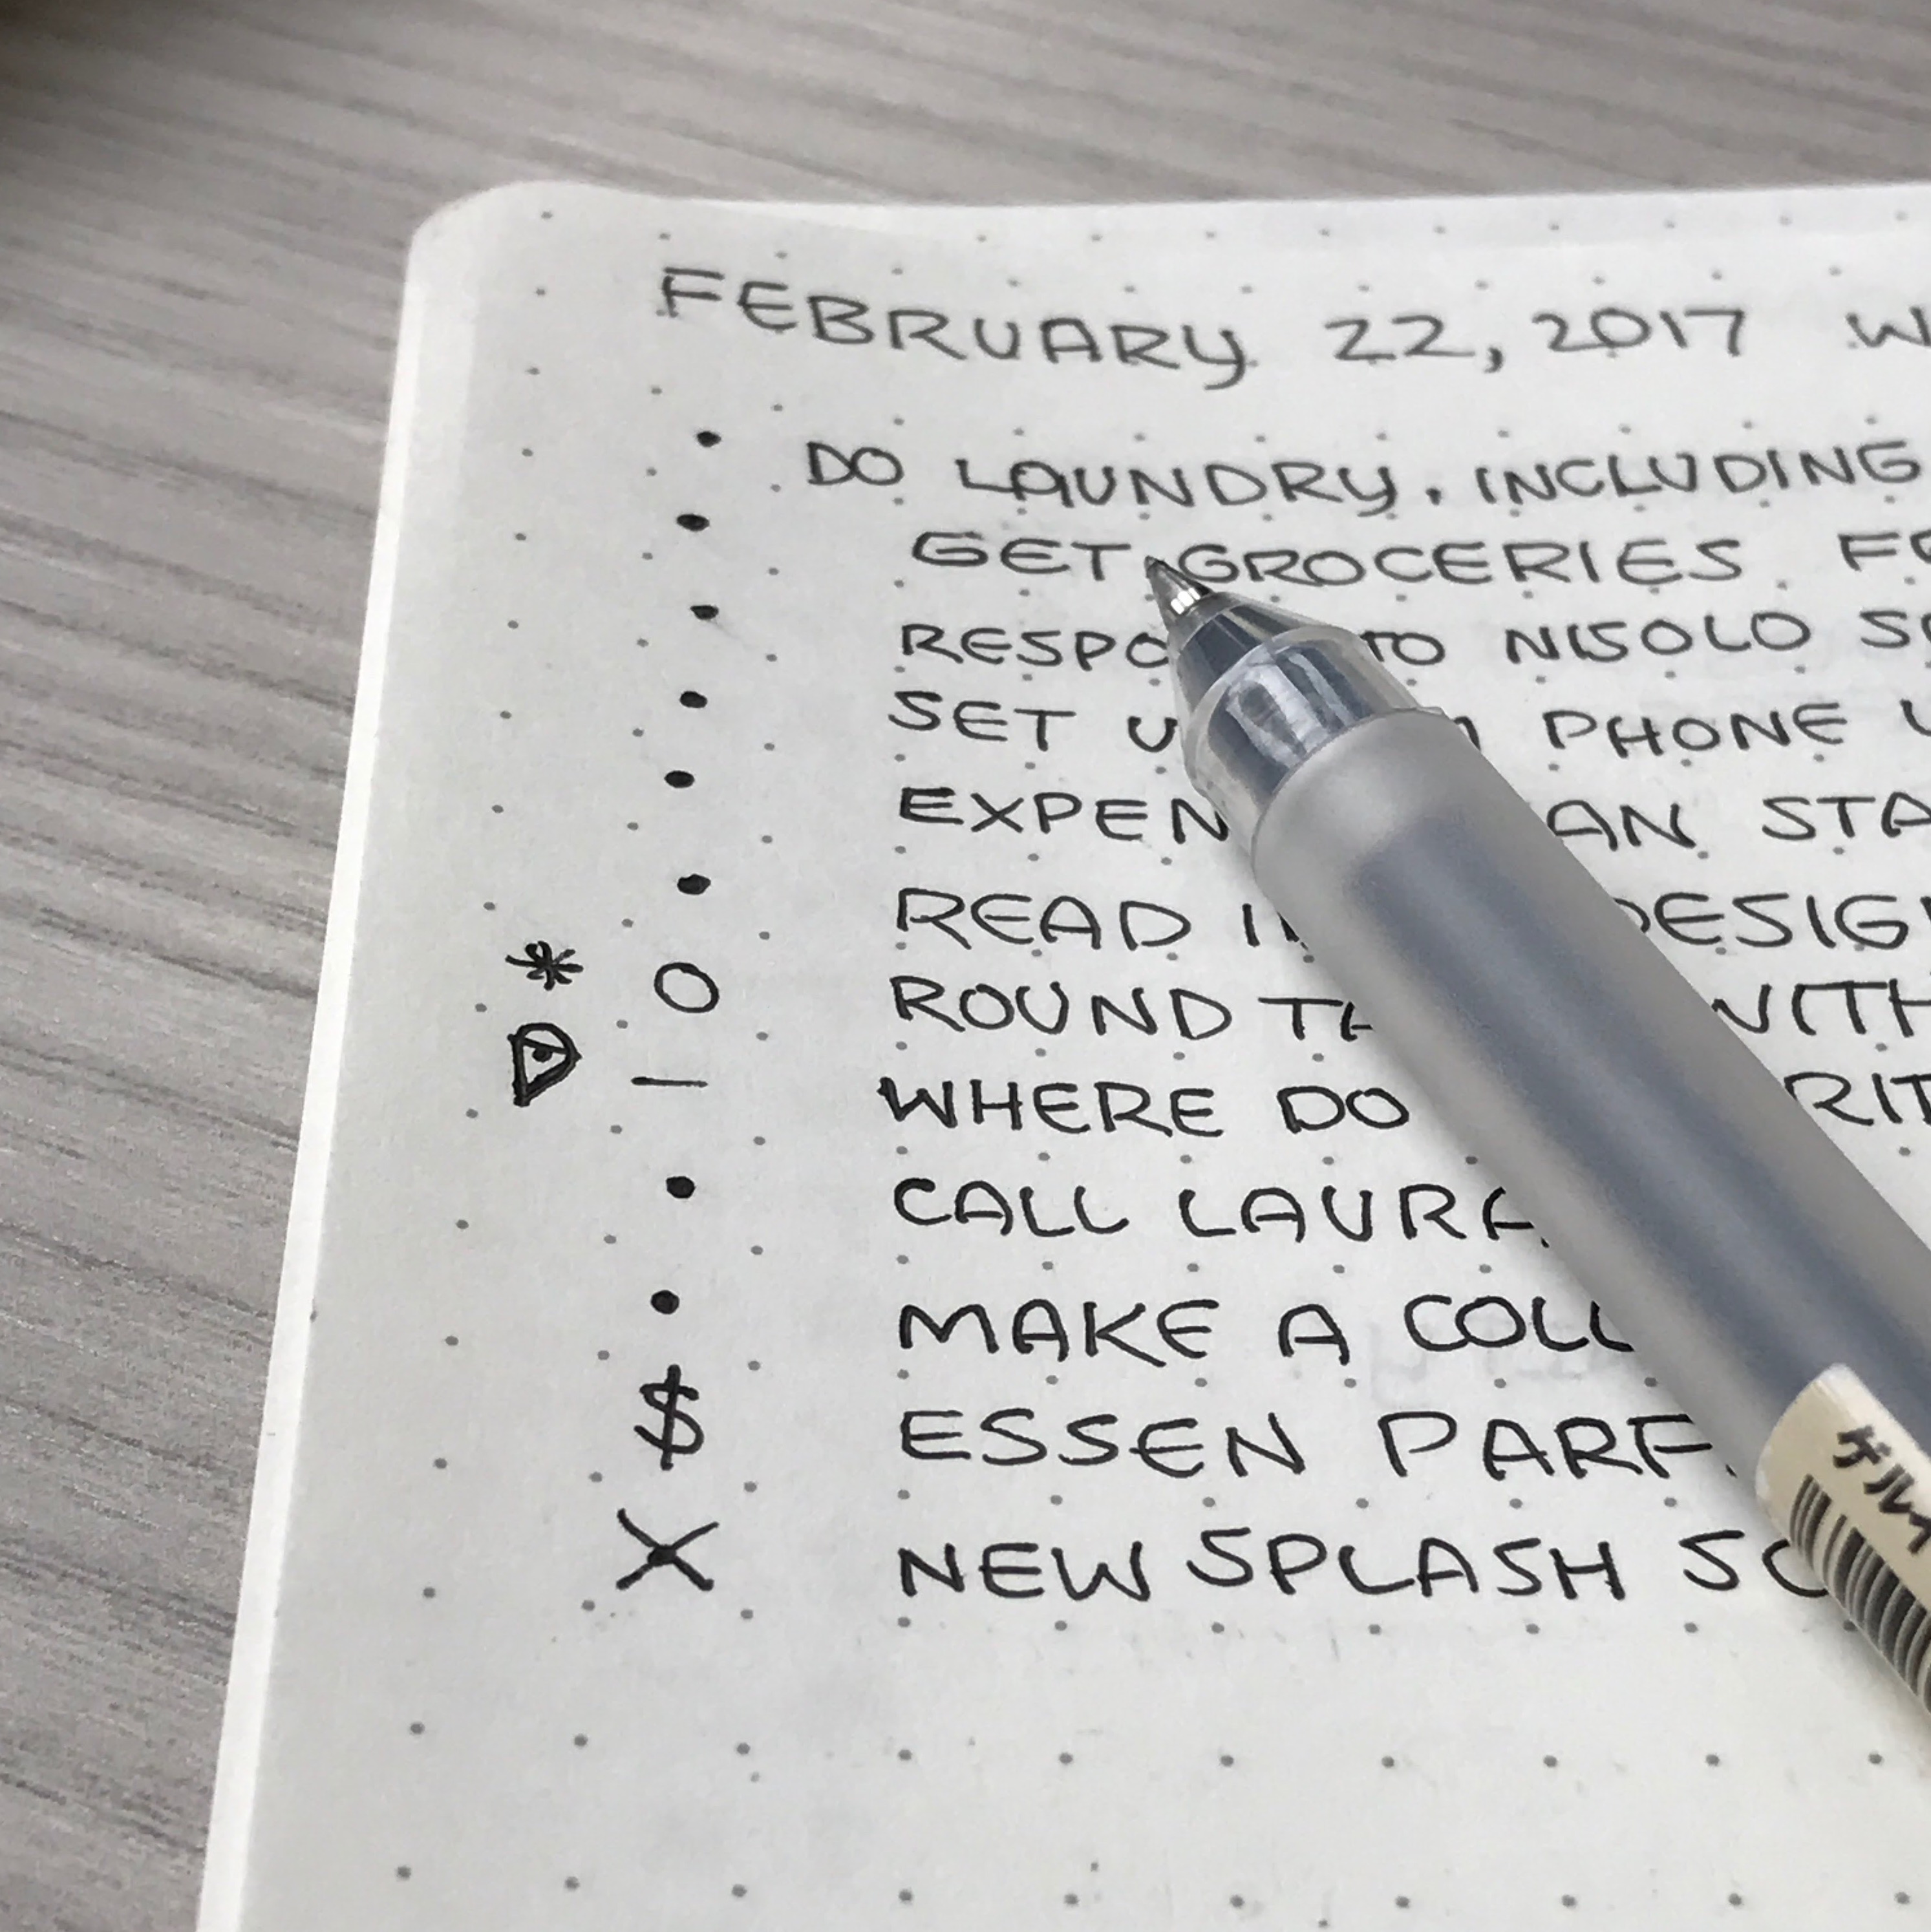 FEBRUARY 22, 2017 W
• DO LAUNDRY, INCLUDING
• GET GROCERIES. 
• RESPO TO NISOLO
• SET U PHONE
• EXPEN AN STA
• READ I DESIG
* O ROUND TA WITH
— WHERE DO RIT
• CALL LAURA
• MAKE A COLL
$ ESSEN PARF
X NEW SPLASH SC
ゲルイ